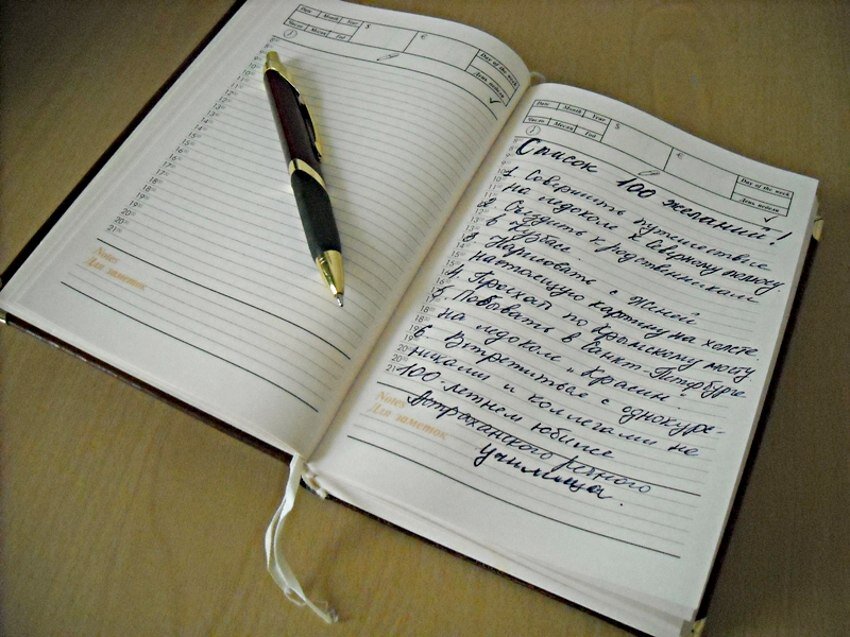 Date Month Year $ €
Число Месяц Год
Day of the week
День недели
8⁰⁰
9⁰⁰
10⁰⁰
11⁰⁰
12⁰⁰
13⁰⁰
14⁰⁰
15⁰⁰
16⁰⁰
17⁰⁰
18⁰⁰
19⁰⁰
20⁰⁰
21⁰⁰
Notes
Для заметок
Date Month Year $ €
Число Месяц Год
Day of the week
День недели
Список 100 желаний!
1. Совершить путешествие
на ледоколе к Северному полюсу.
2. Съездить к родственникам
в Кузбасс.
3. Нарисовать с Женей
настоящую картину на холсте.
4. Проехать по Крымскому мосту
5. Побывать в Санкт-Петербурге
на ледоколе "Красин".
6. Встретиться с однокурс-
никами и коллегами на
100-летнем юбилее
Астраханского речного
училища.
Notes
Для заметок